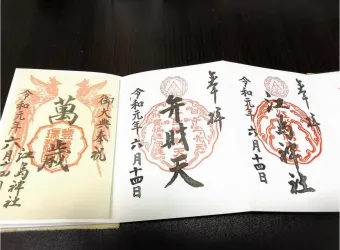 奉拝
江島神社
令和元年六月十四日
奉拝
弁財天
令和元年六月十四日
御大典奉祝
萬歳
江島神社
令和元年